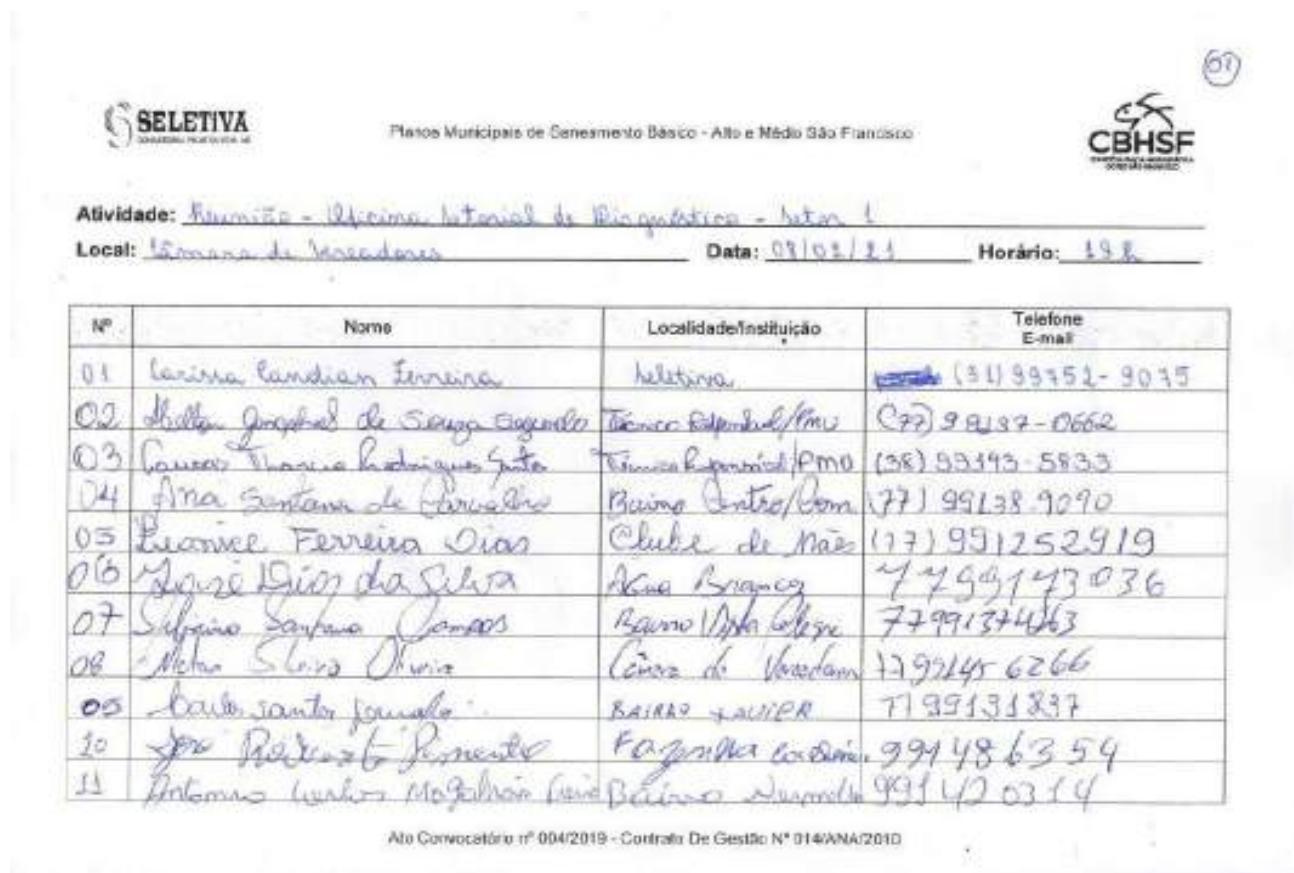 01
SELETIVA
Planos Municipais de Saneamento Básico - Alto e Médio São Francisco
CBHSF
Atividade: Reunião - Oficina Setorial de Diagnóstico - Setor 1
Local: Câmara de Vereadores Data: 08/02/21 Horário: 19h
Nº Nome Localidade/Instituição Telefone
E-mail
01 Larissa Candian Ferreira Seletiva (31) 99752-9075
02 de Souza Técnico Responsável/PMU (77) 99137-0662
03 Rodrigues Técnico Responsável/PMU (38) 99193-5833
04 Ana Santana de Carvalho Bairro Centro/Com (77) 99138.9090
05 Leonice Ferreira Dias Clube de Mães (77) 991252919
06 José Dias da Silva Agua Branca 7799173036
07 Santana Campos Bairro 
08 Oliveira Câmara de 
09 Carlos santos BAIRRO XAVIER 7799131837
10 Fazenda 991486354
11 Antonio Carlos Magalhães Bairro 991420314
Ato Convocatório nº 004/2019 - Contrato De Gestão Nº 014/ANA/2010